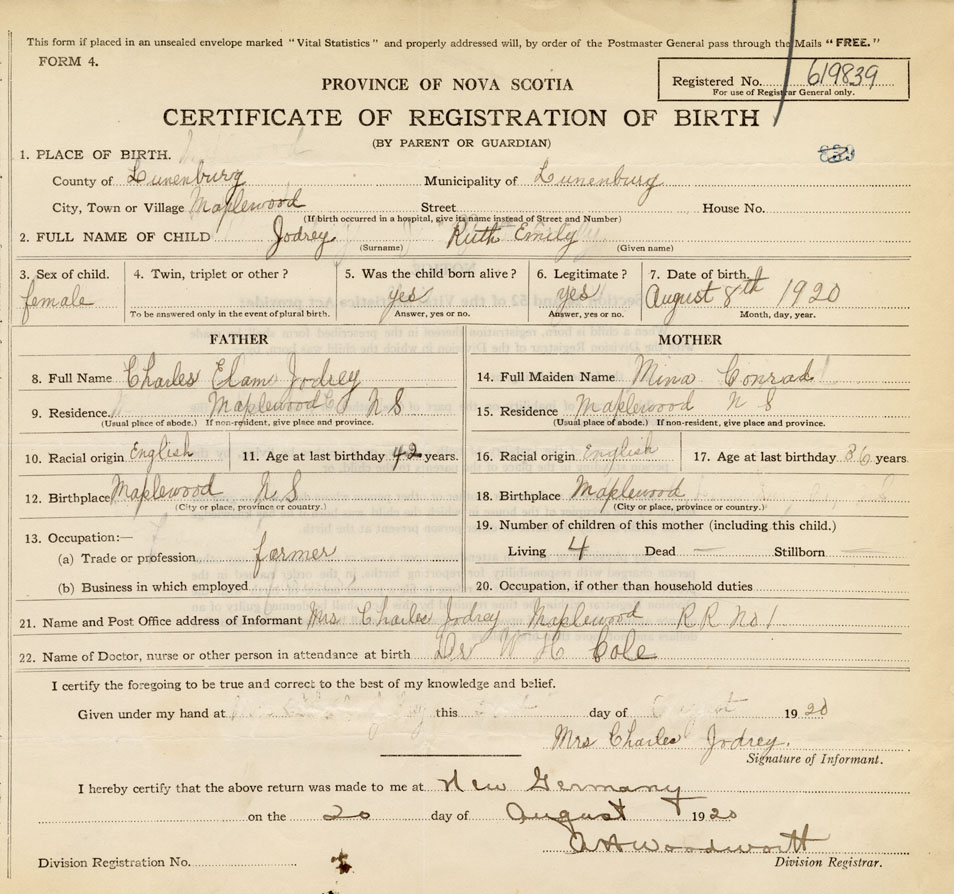 This form if placed in an unsealed envelope marked "Vital Statistics" and properly addressed will, by order of the Postmaster General pass through the Mails "FREE."
FORM 4.
Registered No. 619839
For use of Registrar General only.
PROVINCE OF NOVA SCOTIA
CERTIFICATE OF REGISTRATION OF BIRTH
(BY PARENT OR GUARDIAN)
1. PLACE OF BIRTH.
County of Lunenburg Municipality of Lunenburg
City, Town or Village Maplewood Street House No.
(If birth occurred in a hospital, give its name instead of Street and Number)
2. FULL NAME OF CHILD Jodrey Ruth Emily
(Surname) (Given name)
3. Sex of child. 4. Twin, triplet or other? 5. Was the child born alive? 6. Legitimate? 7. Date of birth.
female yes yes August 8th 1920
To be answered only in the event of plural birth. Answer, yes or no. Answer, yes or no. Month, day, year.
FATHER
8. Full Name Charles Elam Jodrey
9. Residence. Maplewood N S
(Usual place of abode.) If non-resident, give place and province.
10. Racial origin English 11. Age at last birthday 42 years.
12. Birthplace Maplewood N.S
(City or place, province or country.)
13. Occupation:—
(a) Trade or profession farmer
(b) Business in which employed
MOTHER
14. Full Maiden Name Mina Conrad
15. Residence Maplewood N S
(Usual place of abode.) If non-resident, give place and province.
16. Racial origin English 17. Age at last birthday 36 years.
18. Birthplace Maplewood
(City or place, province or country.)
19. Number of children of this mother (including this child.)
Living 4 Dead — Stillborn —
20. Occupation, if other than household duties
21. Name and Post Office address of Informant Mrs Charles Jodrey Maplewood R R No 1
22. Name of Doctor, nurse or other person in attendance at birth Dr W H Cole
I certify the foregoing to be true and correct to the best of my knowledge and belief.
Given under my hand at this day of August 1920
Mrs Charles Jodrey.
Signature of Informant.
I hereby certify that the above return was made to me at New Germany
on the 20 day of August 1920
Woodworth
Division Registrar.
Division Registration No.